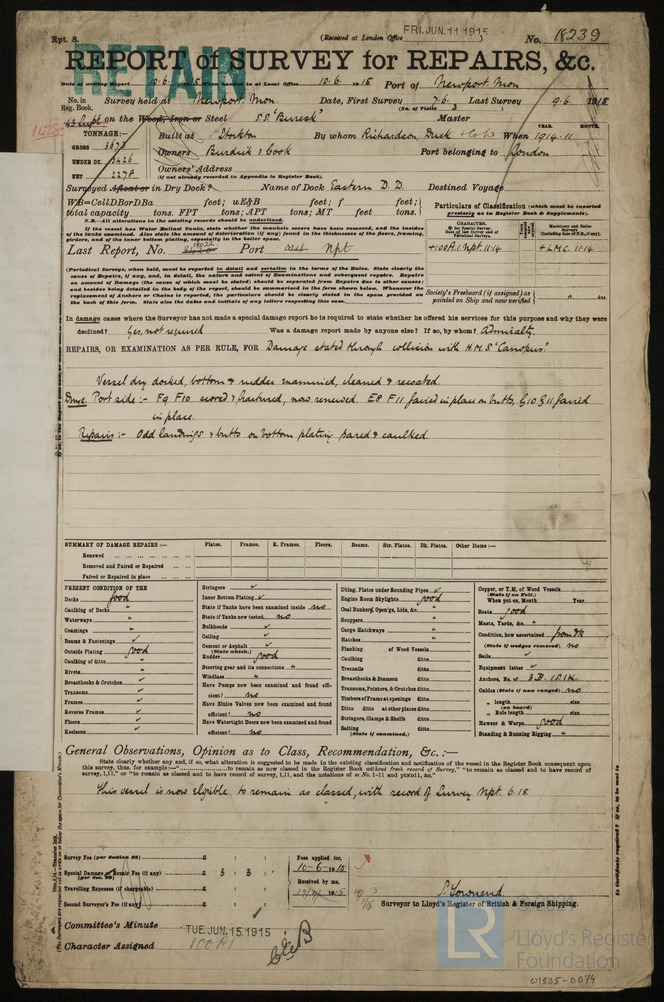 Rpt. 8.
(Received at London Office FRI. JUN. 11 1915
No. 18239
RETAIN
REPORT of SURVEY for REPAIRS, &c.
Date of writing Report 10.6.1915 When handed in at Local Office 10.6.1915 Port of Newport Mon
No. in Reg. Book.
Survey held at Newport, Mon. Date, First Survey 7.6. Last Survey 9.6 1915
(No. of Visits 3)
on the Wood, Iron or Steel S.S. "Buresk" Master
TONNAGE:—
GROSS 3673
UNDER DK. 3426
NET 2278
Built at Stockton By whom Richardson, Duck & Co When 1914-11
YEAR. MONTH.
Owners Burdick & Cook Port belonging to London
Owners' Address
(if not already recorded in Appendix to Register Book).
Surveyed Afloat or in Dry Dock? Name of Dock Eastern D.D. Destined Voyage
WB=CellDBorDBa feet; uE&B feet; f feet;
total capacity tons. FPT tons; APT tons; MT feet tons.
N.B.—All alterations in the existing records should be underlined.
If the vessel have Water Ballast Tanks, state whether the manhole covers have been removed, and the insides
of the tanks examined. Also state the amount of deterioration (if any) found in the thicknesses of the floors, framing,
girders, and of the inner bottom plating, especially in the boiler space.
Last Report, No. Port Npt.
Particulars of Classification (which must be inserted
precisely as in Register Book & Supplements).
CHARACTER.
+100A.1. Npt. 11.14
+LMC. 11.14
Society's Freeboard (if assigned) as
painted on Ship and now verified
ft. ins.
(Periodical Surveys, when held, must be reported in detail and seriatim in the terms of the Rules. State clearly the
cause of Repairs, if any, and, in detail, the nature and extent of Examinations and subsequent repairs. Repairs
on account of Damage (the cause of which must be stated) should be separated from Repairs due to other causes;
and besides being detailed in the body of the report, should be summarised in the form shown below. Whenever the
replacement of Anchors or Chains is reported, the particulars should be clearly stated in the space provided on
the back of this form. State also the dates and initials of any letters respecting this case.
In damage cases where the Surveyor has not made a special damage report he is required to state whether he offered his services for this purpose and why they were
declined? Yes, not required Was a damage report made by anyone else? If so, by whom? Admiralty.
REPAIRS, OR EXAMINATION AS PER RULE, FOR Damage stated through collision with H.M.S "Canopus".
Vessel dry docked, bottom & rudder examined, cleaned & recoated.
Dmge. Port side:- F9 F10 scored & fractured, now renewed. E8 F11 faired in place on butts, G10 G11 faired
in place.
Repairs:- Odd landings & butts on bottom plating pared & caulked.
SUMMARY OF DAMAGE REPAIRS:— Plates. Frames. R. Frames. Floors. Beams. Str. Plates. Dk. Plates. Other Items:—
Renewed
Removed and Faired or Repaired
Faired or Repaired in place
PRESENT CONDITION OF THE
Decks good
Caulking of Decks "
Waterways "
Coamings "
Beams & Fastenings
Outside Plating good
Caulking of ditto "
Rivets "
Breasthooks & Crutches
Transoms
Frames
Reverse Frames
Floors
Keelsons
Stringers
Inner Bottom Plating
State if Tanks have been examined inside no
State if Tanks now tested. no
Bulkheads
Ceiling
Cement or Asphalt
(State which.)
Rudder good
Steering gear and its connections "
Windlass "
Have Pumps now been examined and found effi-
cient? no
Have Sluice Valves now been examined and found
efficient? no
Have Watertight Doors now been examined and found
efficient? no
Dbling. Plates under Sounding Pipes
Engine Room Skylights good
Coal Bunkers, Open'gs, Lids, &c. "
Scuppers "
Cargo Hatchways "
Hatches "
Planking of Wood Vessels.
Caulking ditto
Treenails ditto
Breasthooks & Stemson ditto
Transoms, Pointers, & Crutches ditto
Timbers of Frame at openings ditto
Ditto ditto at other places ditto
Stringers, Clamps & Shelfs ditto
Salting ditto
(State if examined.)
Copper, or Y.M. of Wood Vessels
(State if on Felt.)
When put on, Month Year
Boats good
Masts, Yards, &c. "
Condition, how ascertained from Dk
(State if wedges removed) no
Sails
Equipment letter
Anchors, No. of 3B. 1S. 1K.
Cables (State if now ranged) no
" length size
(on board)
" Rule length size
Hawser & Warps good
Standing & Running Rigging "
General Observations, Opinion as to Class, Recommendation, &c.:—
State clearly whether any, and if so, what alteration is suggested to be made in the existing classification and notification of the vessel in the Register Book consequent upon
this survey, thus, for example:—" to remain as now classed in the Register Book without fresh record of Survey," "to remain as classed and to have record of
survey, 1,11," or "to remain as classed and to have record of survey, 1,11, and the notations of ss No. 1-11 and ptNDl11, &c."
This vessel is now eligible to remain as classed, with record of Survey Npt. 6.15
Survey Fee (per Section 29) £ : :
Special Damage or Repair Fee (if any) £ 3 : 3 :
(per Sec. 29)
Travelling Expenses (if chargeable) £ : :
Second Surveyor's Fee (if any) £ : :
Fees applied for,
10-6-1915
Received by me,
1915
S. Townend
Surveyor to Lloyd's Register of British & Foreign Shipping.
Committee's Minute TUE. JUN. 15 1915
Character Assigned 100A1
LR
Lloyd's Register
Foundation
01535-0074